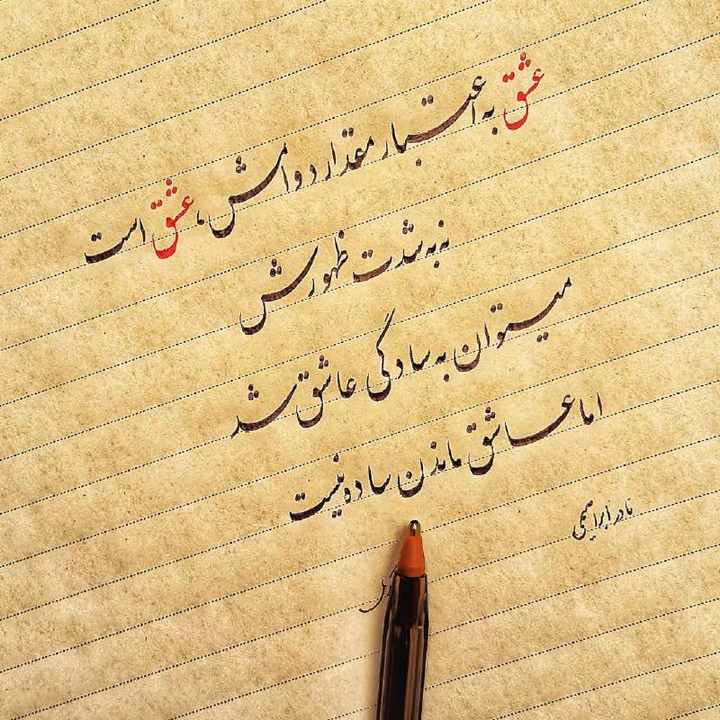 عشق به اعتبار مقدار دوامش، عشق است
نه به شدت ظهورش
میتوان به سادگی عاشق شد
اما عاشق ماندن ساده نیست
نادر ابراهیمی